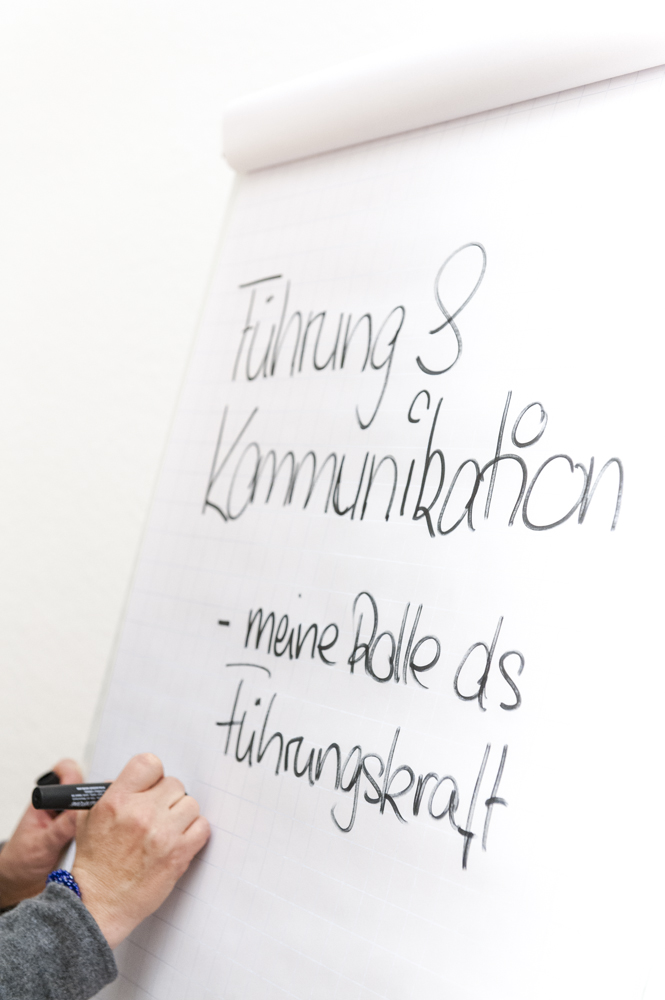 Führung &
Kommunikation
- meine Rolle als
Führungskraft